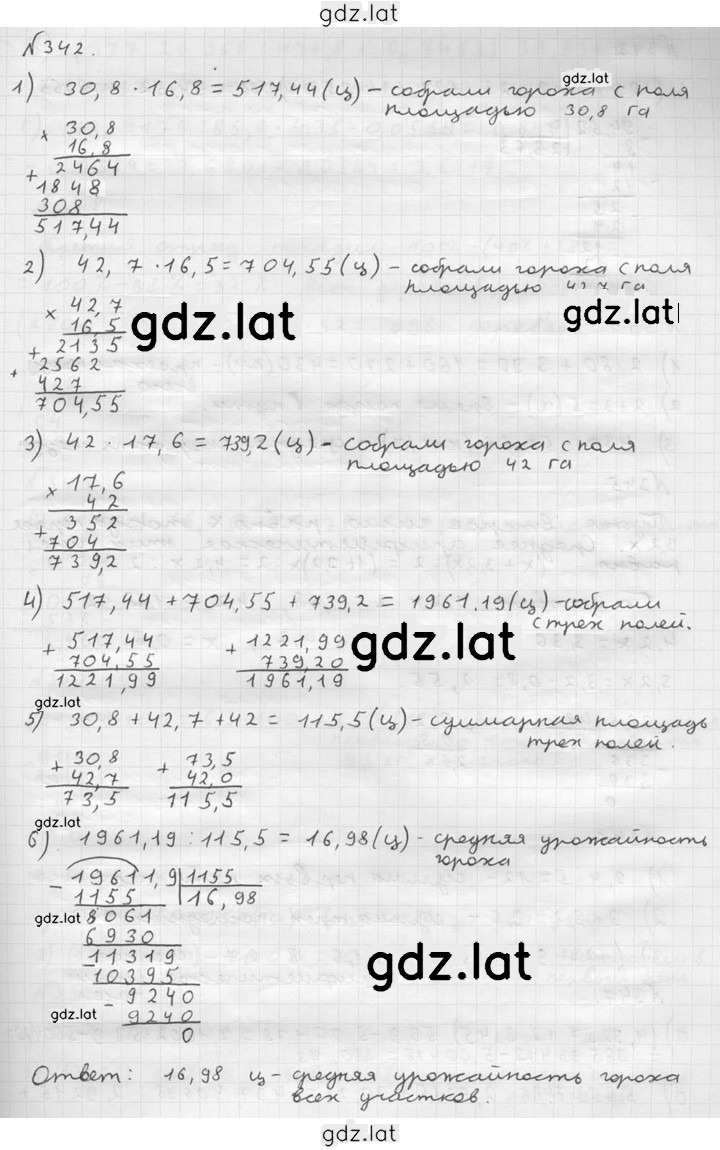 gdz.lat
№342.
gdz.lat
1) 30,8 · 16,8 = 517,44 (ц) - собрали гороха с поля
площадью 30,8 га
× 30,8
16,8
+ 2464
1848
308
517,44
2) 42,7 · 16,5 = 704,55 (ц) - собрали гороха с поля
площадью га
× 42,7
16,5
+ 2135
+ 2562
427
704,55
gdz.lat
gdz.lat
3) 42 · 17,6 = 739,2 (ц) - собрали гороха с поля
площадью 42 га
× 17,6
42
+ 352
704
739,2
4) 517,44 + 704,55 + 739,2 = 1961.19 (ц) - собрали
с трех полей.
+ 517,44
704,55
1221,99
+ 1221,99
739,20
1961,19
gdz.lat
gdz.lat
5) 30,8 + 42,7 + 42 = 115,5 (ц) - суммарная площадь
трех полей.
+ 30,8
42,7
73,5
+ 73,5
42,0
115,5
gdz.lat
6) 1961,19 : 115,5 = 16,98 (ц) - средняя урожайность
гороха
- 19611,9 | 1155
1155 | 16,98
gdz.lat
8061
6930
11319
- 10395
- 9240
9240
0
gdz.lat
gdz.lat
Ответ: 16,98 ц - средняя урожайность гороха
всех участков.
gdz.lat